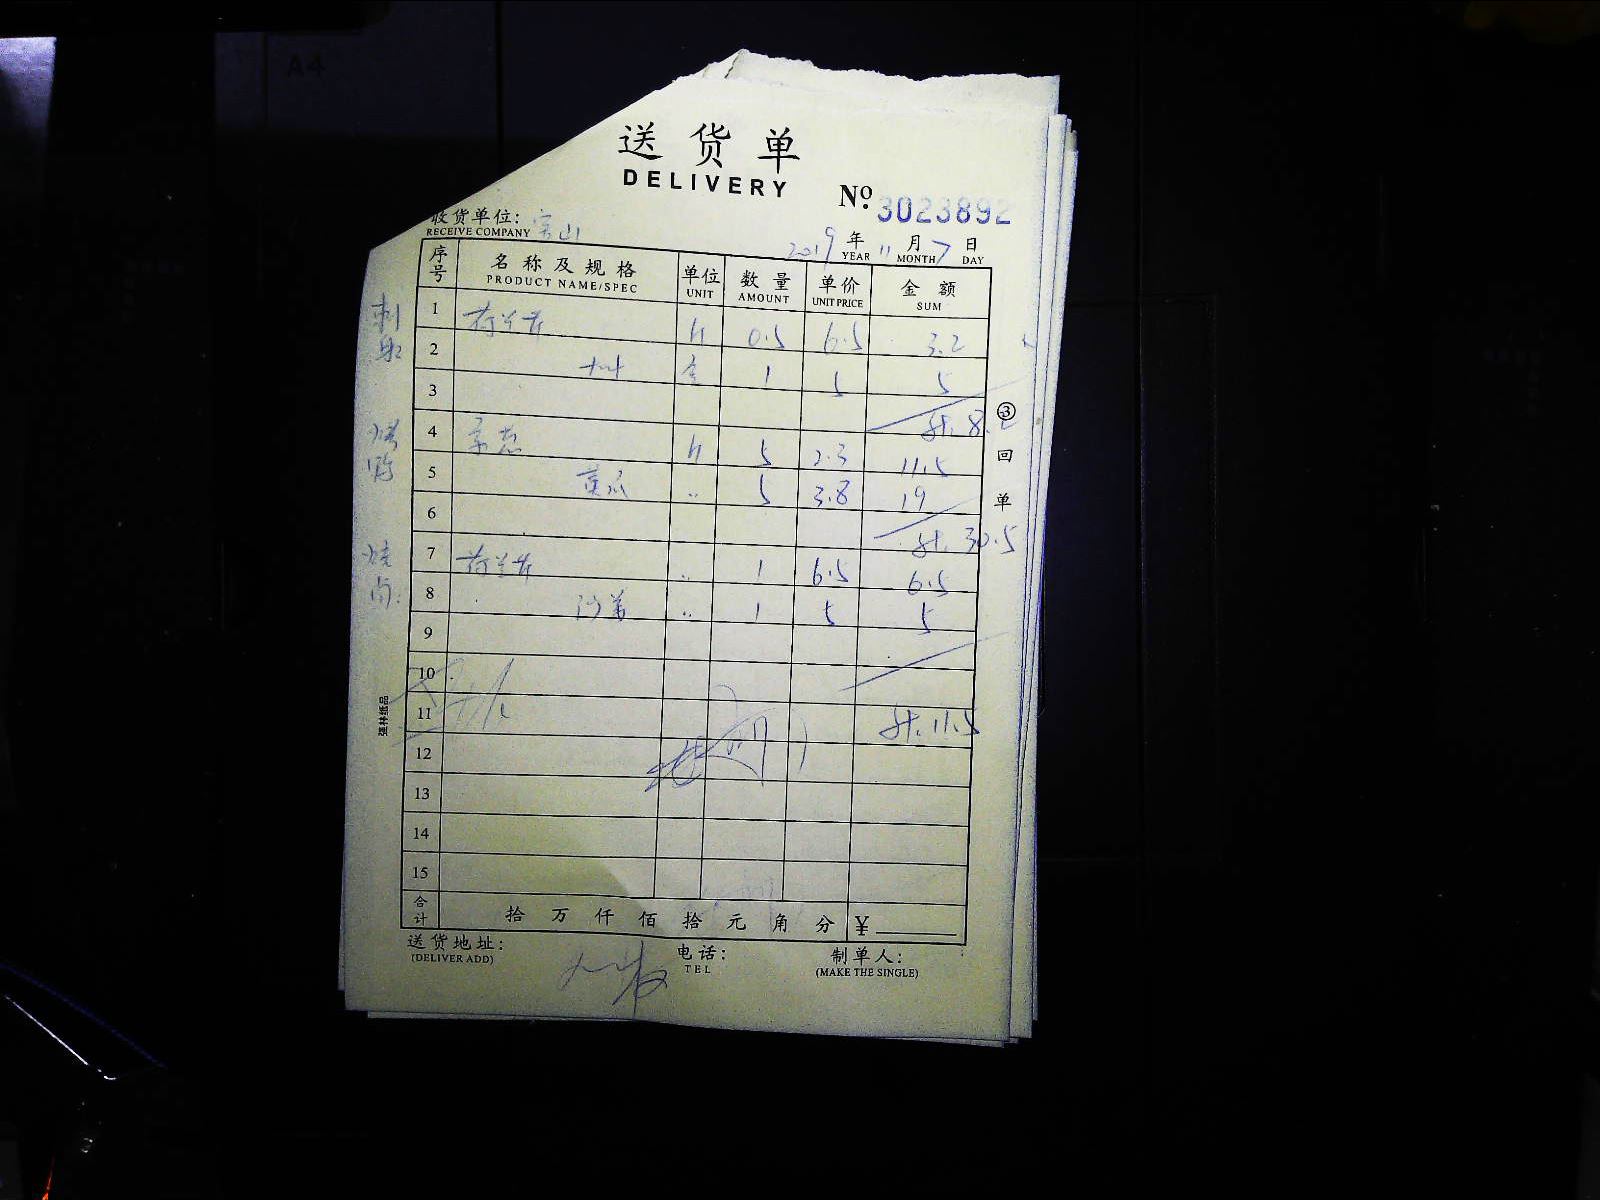 A4
送货单
DELIVERY
№ 3023892
收货单位:
RECEIVE COMPANY
2019 年 11 月 7 日
YEAR MONTH DAY
序号 名称及规格 单位 数量 单价 金额
PRODUCT NAME/SPEC UNIT AMOUNT UNIT PRICE SUM
1 荷兰芹 斤 0.5 6.5 3.2
2 1 5 5
3 计. 8.2
4 京葱 斤 5 2.3 11.5
5 黄瓜 .. 5 3.8 19
6 计. 30.5
7 荷兰芹 .. 1 6.5 6.5
8 沙姜 .. 1 5 5
9
10
11 计. 11.5
12
13
14
15
合计 拾 万 仟 佰 拾 元 角 分 ¥
送货地址: 电话: 制单人:
(DELIVER ADD) TEL (MAKE THE SINGLE)
③回单
强林纸品